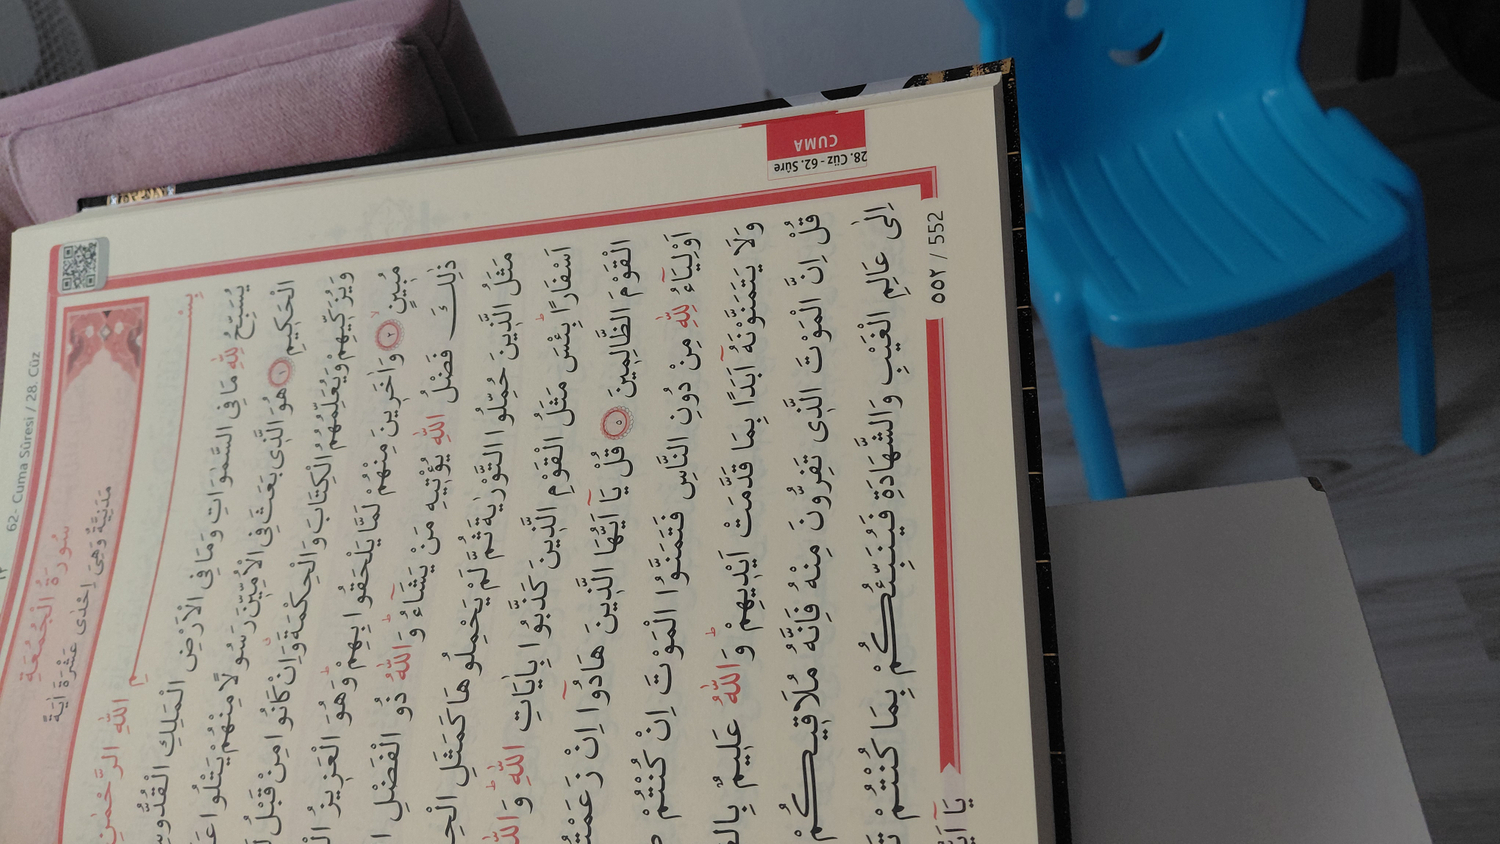 62- Cuma Sûresi / 28. Cüz
28. Cüz - 62. Sûre
CUMA
سُورَةُ الْجُمُعَةِ
مَدَنِيَّةٌ وَهِىَ اِحْدٰى عَشْرَةَ اٰيَةً
بِسْمِ اللّٰهِ الرَّحْمٰنِ
يُسَبِّحُ لِلّٰهِ مَا فِى السَّمٰوَاتِ وَمَا فِى الْاَرْضِ الْمَلِكِ الْقُدُّوسِ
الْحَكِيمِ ١ هُوَ الَّذِى بَعَثَ فِى الْاُمِّيّنَ رَسُولًا مِنْهُمْ يَتْلُوا
وَيُزَكِّيهِمْ وَيُعَلِّمُهُمُ الْكِتَابَ وَالْحِكْمَةَ وَاِنْ كَانُوا مِنْ قَبْلُ
مُبِينٍ ٢ وَاٰخَرِينَ مِنْهُمْ لَمَّا يَلْحَقُوا بِهِمْ وَهُوَ الْعَزِيزُ
ذٰلِكَ فَضْلُ اللّٰهِ يُؤْتِيهِ مَنْ يَشَٓاءُ وَاللّٰهُ ذُو الْفَضْلِ
مَثَلُ الَّذِينَ حُمِّلُوا التَّوْرٰيةَ ثُمَّ لَمْ يَحْمِلُوهَا كَمَثَلِ
اَسْفَارًا بِئْسَ مَثَلُ الْقَوْمِ الَّذِينَ كَذَّبُوا بِاٰيَاتِ اللّٰهِ وَاللّٰهُ
الْقَوْمَ الظَّالِمِينَ ٥ قُلْ يَٓا اَيُّهَا الَّذِينَ هَادُٓوا اِنْ زَعَمْتُمْ
اَوْلِيَٓاءُ لِلّٰهِ مِنْ دُونِ النَّاسِ فَتَمَنَّوُا الْمَوْتَ اِنْ كُنْتُمْ
وَلَا يَتَمَنَّوْنَهُٓ اَبَدًا بِمَا قَدَّمَتْ اَيْدِيهِمْ وَاللّٰهُ عَلِيمٌ
قُلْ اِنَّ الْمَوْتَ الَّذِى تَفِرُّونَ مِنْهُ فَاِنَّهُ مُلَاقِيكُمْ
اِلٰى عَالِمِ الْغَيْبِ وَالشَّهَادَةِ فَيُنَبِّئُكُمْ بِمَا كُنْتُمْ
يَٓا
٥٥٢ / 552